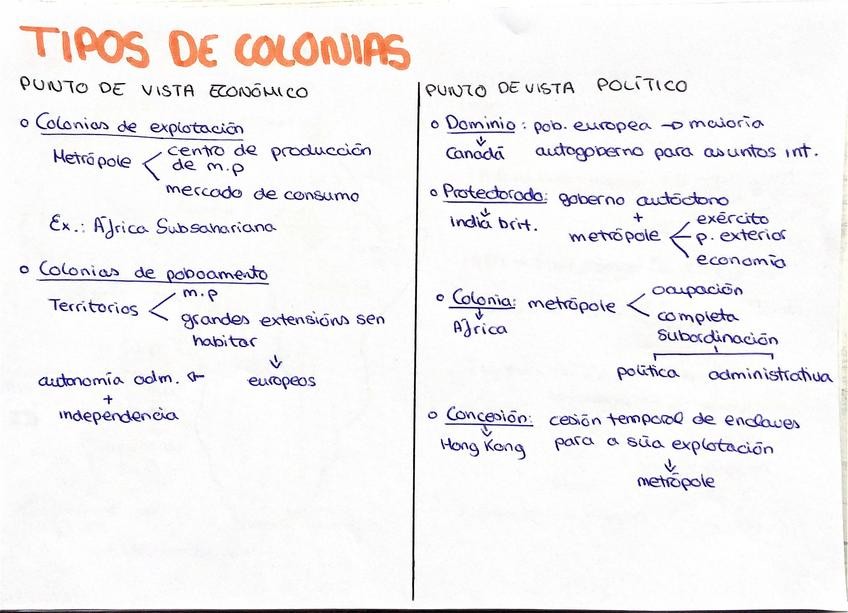 TIPOS DE COLONIAS
PUNTO DE VISTA ECONÓMICO
o Colonias de explotación
Metrópole < centro de producción
de m.p
mercado de consumo
Ex.: África Subsahariana
o Colonias de poboamento
Territorios < m.p
grandes extensións sen
habitar
↓
autonomía adm. ← europeos
+
independencia
PUNTO DE VISTA POLÍTICO
o Dominio: pob. europea → maioría
↓
Canadá autogoberno para asuntos int.
o Protectorado: goberno autóctono
↓
india brit. +
metrópole < exército
p. exterior
economía
o Colonia: metrópole < ocupación
↓
África
completa
subordinación
política administrativa
o Concesión: cesión temporal de enclaves
↓
Hong Kong para a súa explotación
↓
metrópole